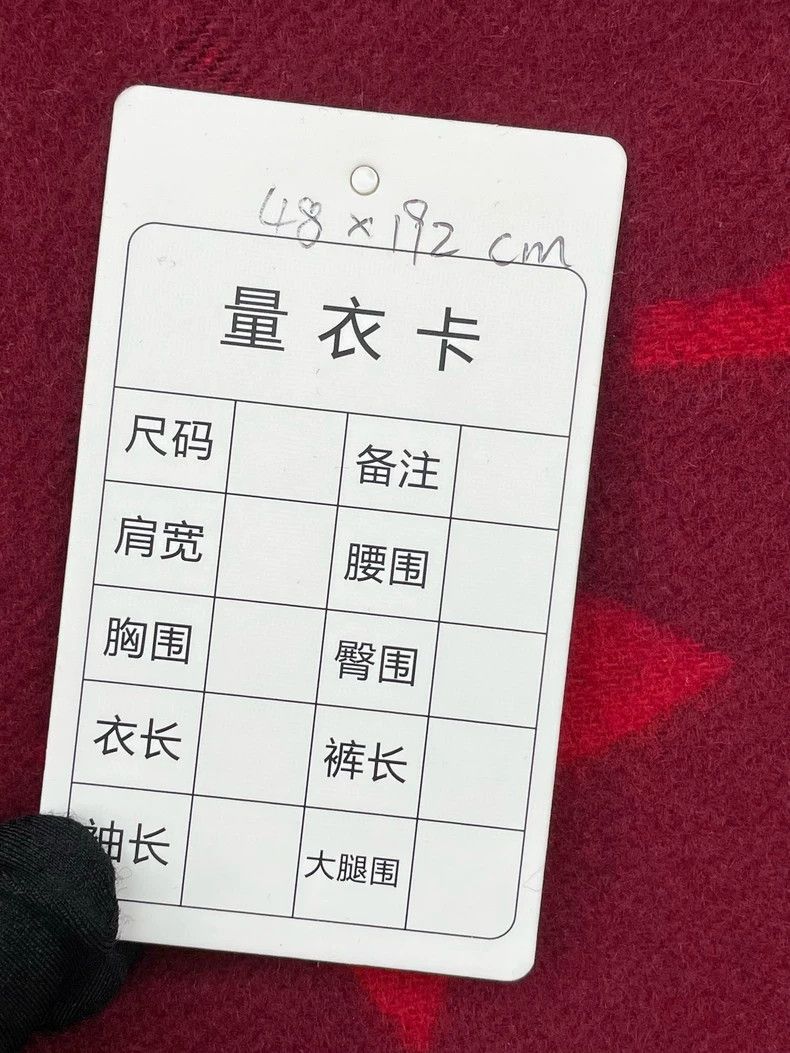 48×192 cm
量衣卡
尺码 备注
肩宽 腰围
胸围 臀围
衣长 裤长
袖长 大腿围